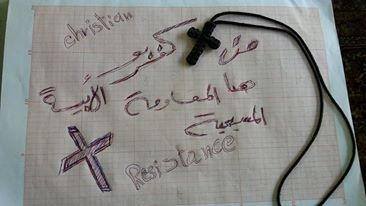 christian
من كفربو الأبية
هنا المقاومة
المسيحية
Resistance